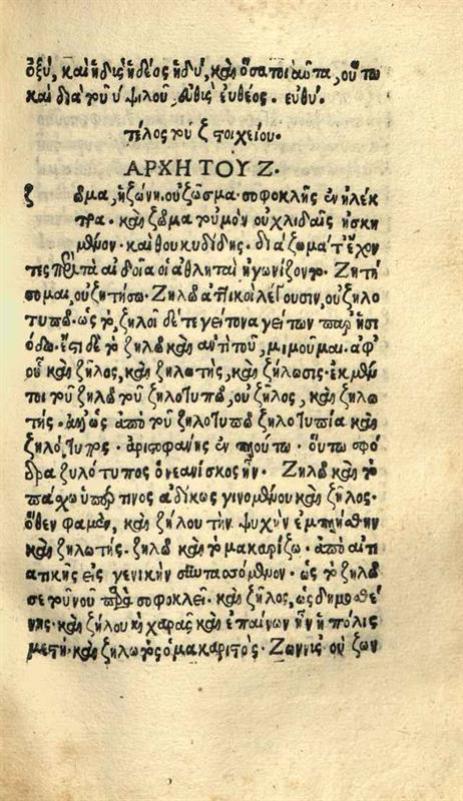 ὀξύ, καὶ ἡδὺς ἡδέος ἡδύ, καὶ ὅσα τοιαῦτα, οὕτω
καὶ διὰ τοῦ ὑψιλοῦ εὐθὺς εὐθέος. εὐθύ.
τέλος τοῦ ξ στοιχείου.
ΑΡΧΗ ΤΟΥ Ζ.
ζ ῶμα, ἢ ζώνη. οὐ ζῶσμα. σοφοκλῆς ἐν ἠλέκ
τρα. καὶ ζῶμα τοὐμὸν οὐ χλιδαῖς ἠσκη
μένον. καὶ θουκυδίδης. διαζώματ' ἔχον
τες περὶ τὰ αἰδοῖα οἱ ἀθληταὶ ἠγωνίζοντο. Ζητή
σομαι, οὐ ζητήσω. Ζηλῶ ἀττικοὶ λέγουσιν, οὐ ζηλο
τυπῶ. ὡς τὸ, ζηλοῖ δέ τε γείτονα γείτων παρ' ἡσι
όδω. ἔστι δὲ τὸ ζηλῶ καὶ ἀντὶ τοῦ, μιμοῦμαι. ἀφ'
οὗ καὶ ζῆλος, καὶ ζηλωτὴς, καὶ ζήλωσις. ἐκ μέν
τοι τοῦ ζηλῶ τοῦ ζηλοτυπῶ, οὐ ζῆλος, καὶ ζηλω
τής. ἀπὸ τοῦ ζηλοτυπῶ ζηλοτυπία καὶ
ζηλότυπος. ἀριστοφάνης ἐν πλούτω. οὕτω σφό
δρα ζυλότυπος ὁ νεανίσκος ἦν. Ζηλῶ καὶ τὸ
πάσχω ὑπέρ τινος ἀδίκως γινομένου καὶ ζῆλος.
ὅθεν φαμὲν, καὶ ζήλου τὴν ψυχὴν ἐμπλήσθην
καὶ ζηλωτής. ζηλῶ καὶ τὸ μακαρίζω. ἀπὸ αἰτι
ατικῆς εἰς γενικὴν συντασσόμενον. ὡς τὸ ζηλῶ
σε τοῦ νοῦ παρὰ σοφοκλεῖ. καὶ ζῆλος, ὡς δημοσθέ
νης. καὶ ζήλου καὶ χαρᾶς καὶ ἐπαίνων ἦν ἡ πόλις
μεστή. καὶ ζηλωτὸς ὁ μακαριστός. Ζωννὺς οὐ ζων